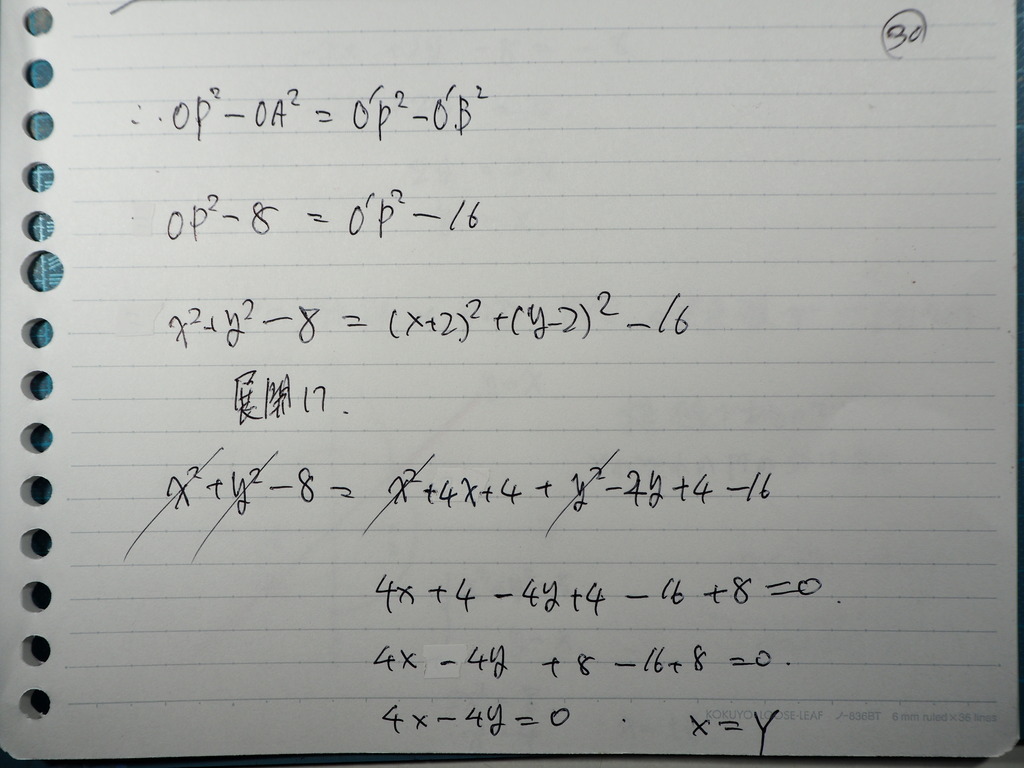 30
∴ OP² - OA² = O'P² - O'B²
OP² - 8 = O'P² - 16
x² + y² - 8 = (x+2)² + (y-2)² - 16
展開け.
x² + y² - 8 = x² + 4x + 4 + y² - 4y + 4 - 16
4x + 4 - 4y + 4 - 16 + 8 = 0.
4x - 4y + 8 - 16 + 8 = 0.
4x - 4y = 0 . x = y
KOKUYO LOOSE-LEAF ノ-836BT 6 mm ruled × 36 lines